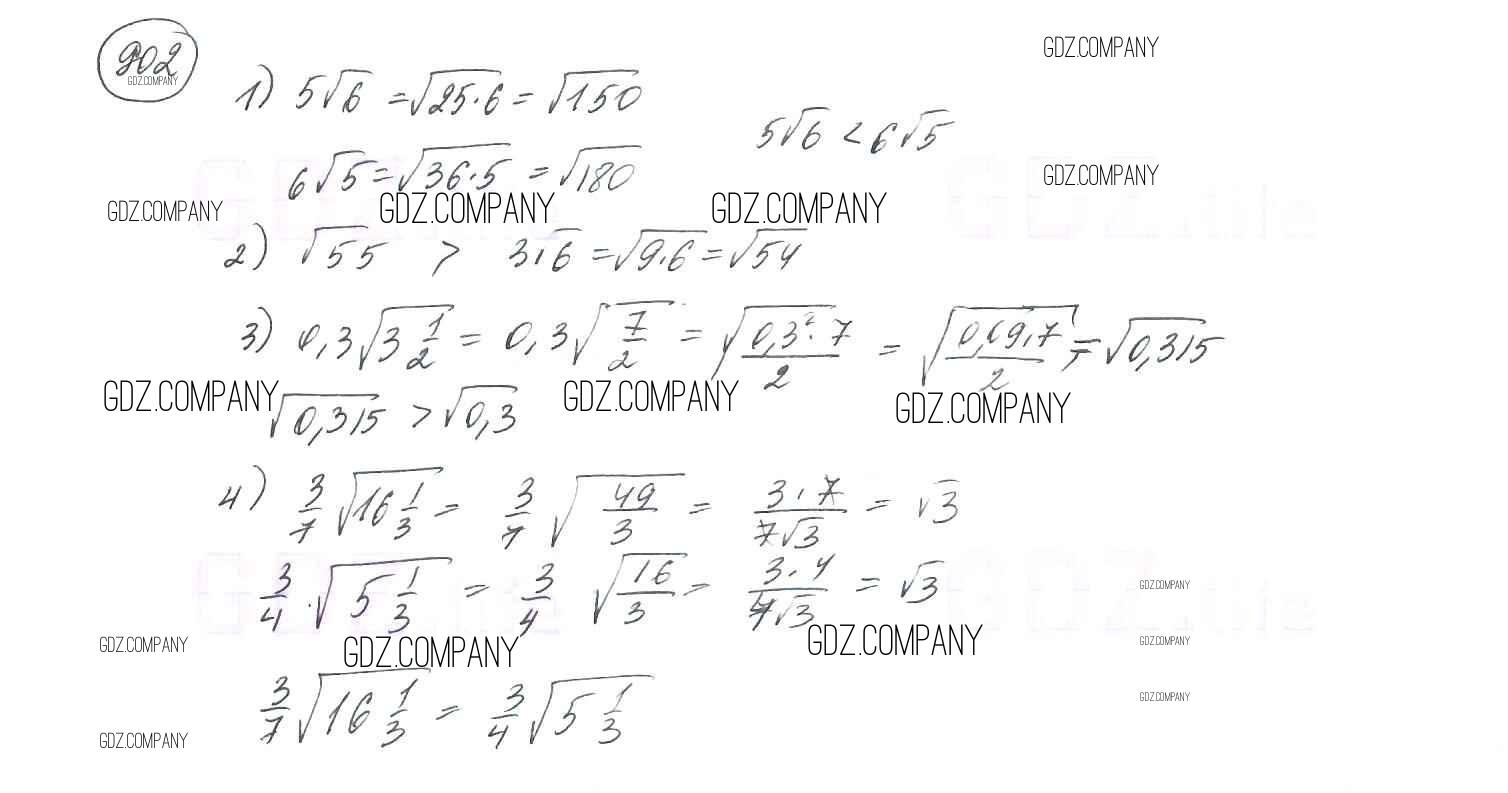 902
GDZ.COMPANY
GDZ.COMPANY
1) 5√6 = √25·6 = √150
5√6 < 6√5
6√5 = √36·5 = √180
GDZ.COMPANY
GDZ.COMPANY
GDZ.COMPANY
GDZ.COMPANY
2) √55 > 3√6 = √9·6 = √54
3) 0,3√3 1/2 = 0,3√7/2 = √0,3²·7/2 = √0,09·7/2 = √0,315
GDZ.COMPANY
GDZ.COMPANY
GDZ.COMPANY
√0,315 > √0,3
4) 3/7 √16 1/3 = 3/7 √49/3 = 3·7/7√3 = √3
3/4 · √5 1/3 = 3/4 √16/3 = 3·4/4√3 = √3
GDZ.COMPANY
GDZ.COMPANY
GDZ.COMPANY
GDZ.COMPANY
GDZ.COMPANY
3/7 √16 1/3 = 3/4 √5 1/3
GDZ.COMPANY
GDZ.COMPANY